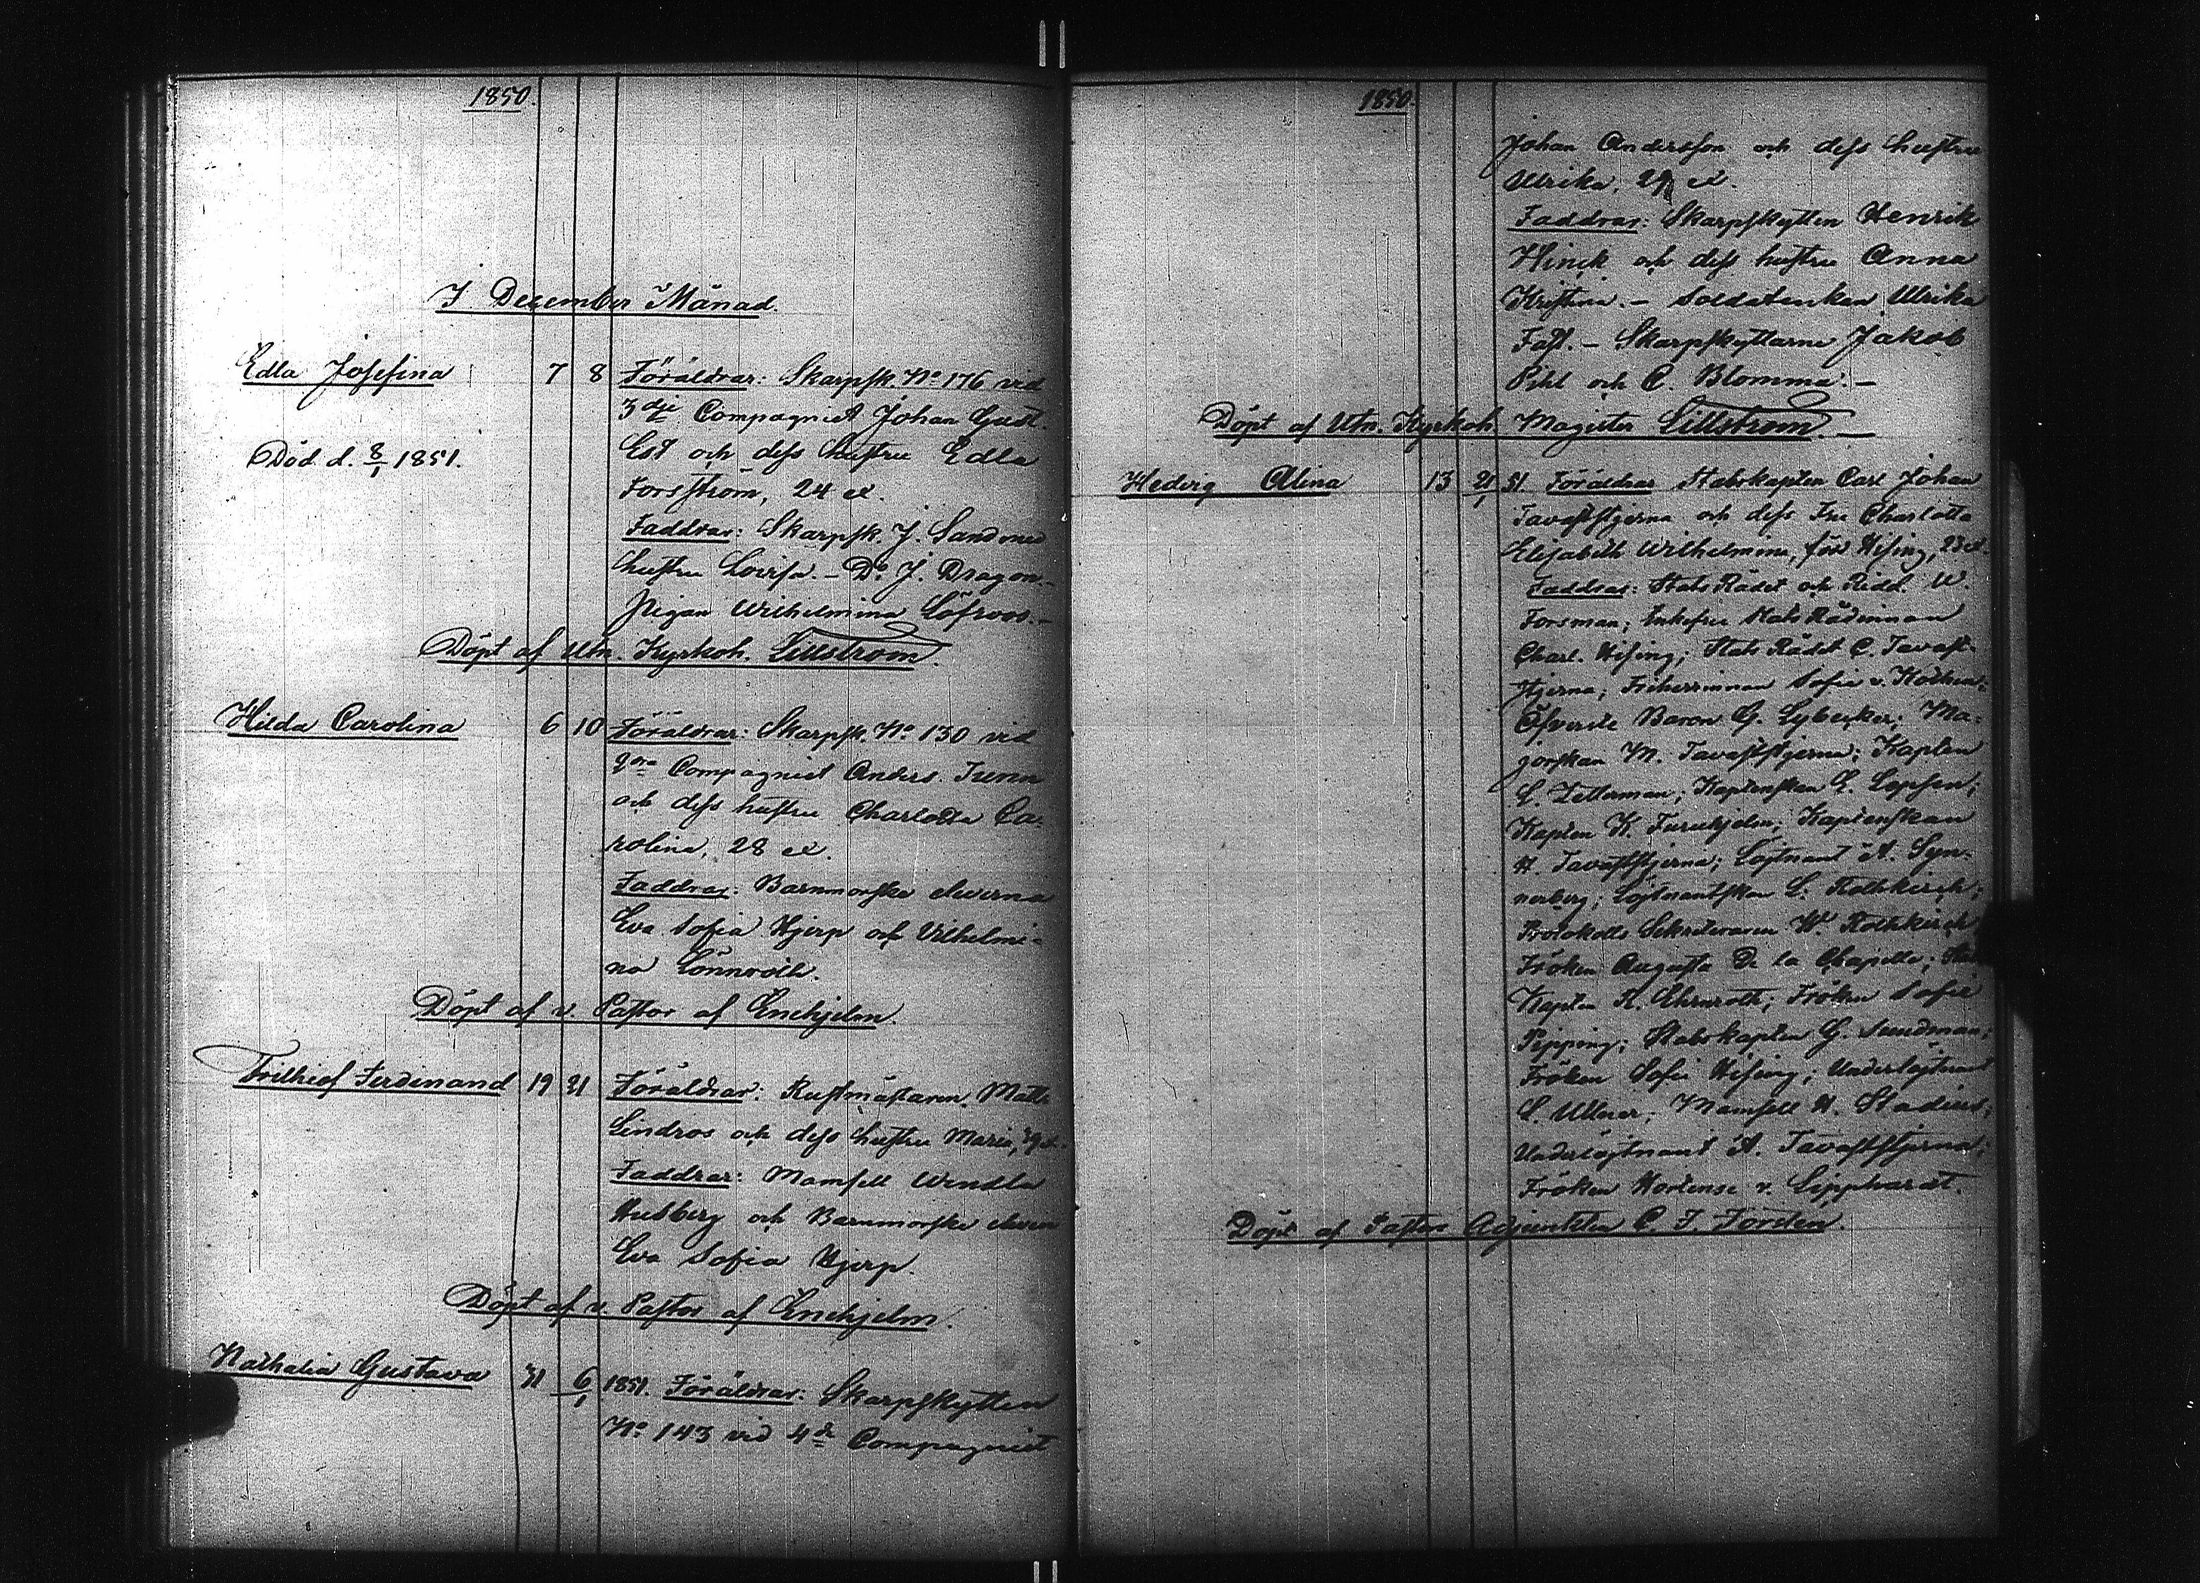 1850.
I December Månad.
Edla Josefina 7 8 Föräldrar: Skarpsk. No 176 vid
3dje Compagniet Johan Gust.
Död d. 8/1 1851.
Est och dess hustru Edla
Forsström, 24 ål.
Faddrar: Skarpsk. J. Sand med
hustru Lovisa. - Do J. Dragon. -
Pigan Wilhelmina Löfroos. -
Döpt af Utn. Kyrkoh. Lillström.
Hilda Carolina 6 10 Föräldrar: Skarpsk. No 130 vid
Compagniet Anders
och dess hustru Charlotta Ca-
rolina, 28 ål.
Faddrar: Barnmorske eleverna
Eva Sofia Hjerp och Vilhelmi-
na Lönnroth.
Döpt af v. Pastor af Enehjelm.
Frithiof Ferdinand 19 21 Föräldrar: Rustmästaren Matts
Lindros och dess hustru Maria,
Faddrar: Mamsell Wendla
Husberg och Barnmorske eleven
Eva Sofia Hjerp
Döpt af v. Pastor af Enehjelm.
Nathalia Gustava 31 6/1 1851. Föräldrar: Skarpskytten
No 143 vid 4de Compagniet
1850.
Johan Andersson och dess hustru
Ulrika, 29 ål.
Faddrar: Skarpskytten Henrik
Hinck och dess hustru Anna
Kristina. - Soldatenkan Ulrika
Fast. - Skarpskyttarne Jakob
Pihl och C. Blomma. -
Döpt af Utn. Kyrkoh. Magister Lillström. -
Hedvig Alina 13 21/1 51. Föräldrar Stabskapten Carl Johan
Tavaststjerna och dess Fru Charlotta
Elisabeth Wilhelmina, född Hising,
Faddrar: Stats Rådet och Ridd. W.
Forsman; Enkefru Stats Rådinnan
Charl. Hising; Stats Rådet C. Tavast-
stjerna; Friherrinnan Sofie v. Kothen;
Öfverste Baron G. Lybecker; Ma-
jorskan M. Tavaststjerna; Kapten
L. Zetterman; Kaptenskan E.
Kapten K. Furuhjelm; Kaptenskan
H. Tavaststjerna; Löjtnant A. Syn-
nerberg; Löjtnantskan L. Rothkirch;
Protokolls Sekreteraren W. Rothkirch
Fröken Augusta De la Chapelle;
Kapten K. Ehrnroth; Fröken Sofie
Pipping; Stabskapten G. Sundman;
Fröken Sofie Hising; Underlöjtnant
L. Ullner; Mamsell H. Stadius;
Underlöjtnant A. Tavaststjerna;
Fröken Hortense v. Lipphardt.
Döpt af Pastors Adjunkten C. J. Forstén